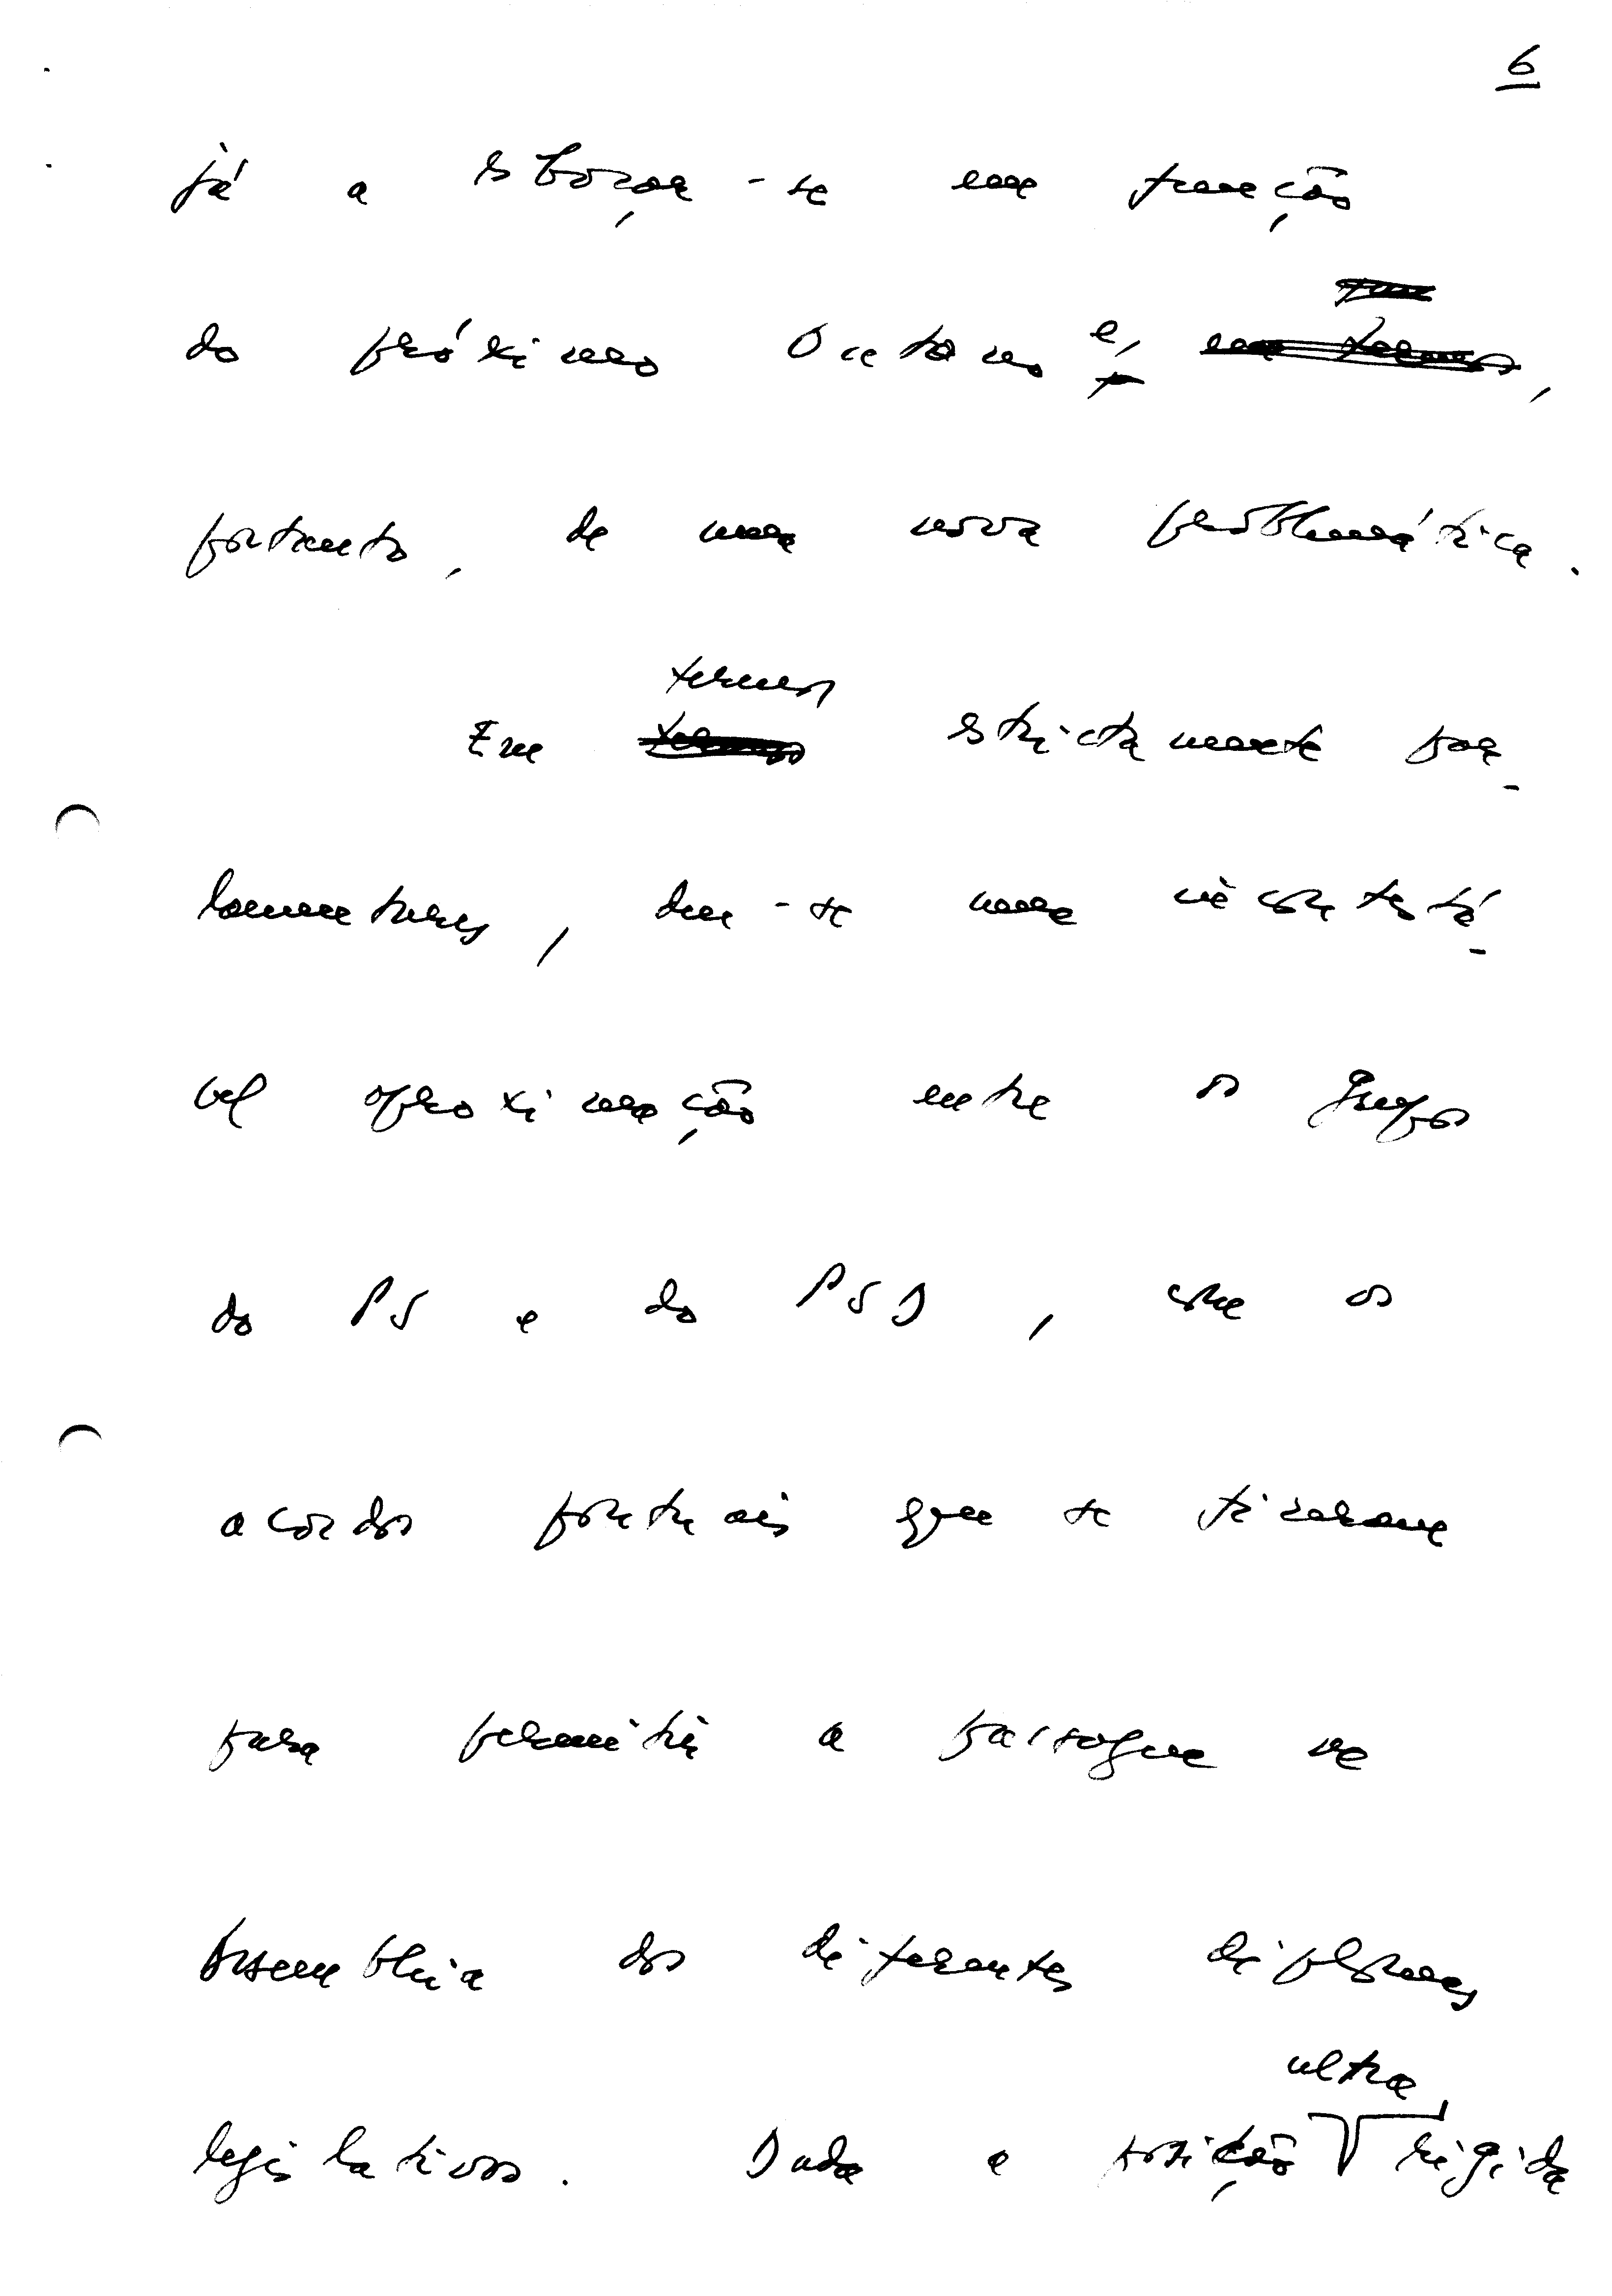 6
já a esboçar-se em função
do próximo Outono e,
portanto, de uma nova problemática.
termos
Em termos estrictamente par-
lamentares, deu-se uma incontestá-
vel aproximação entre os Grupos
do PS e do PSD, com os
acordos pontuais que se fizeram
para permitir a passagem na
Assembleia dos diferentes diplomas
ultra
legislativos. Dada a posição rígida